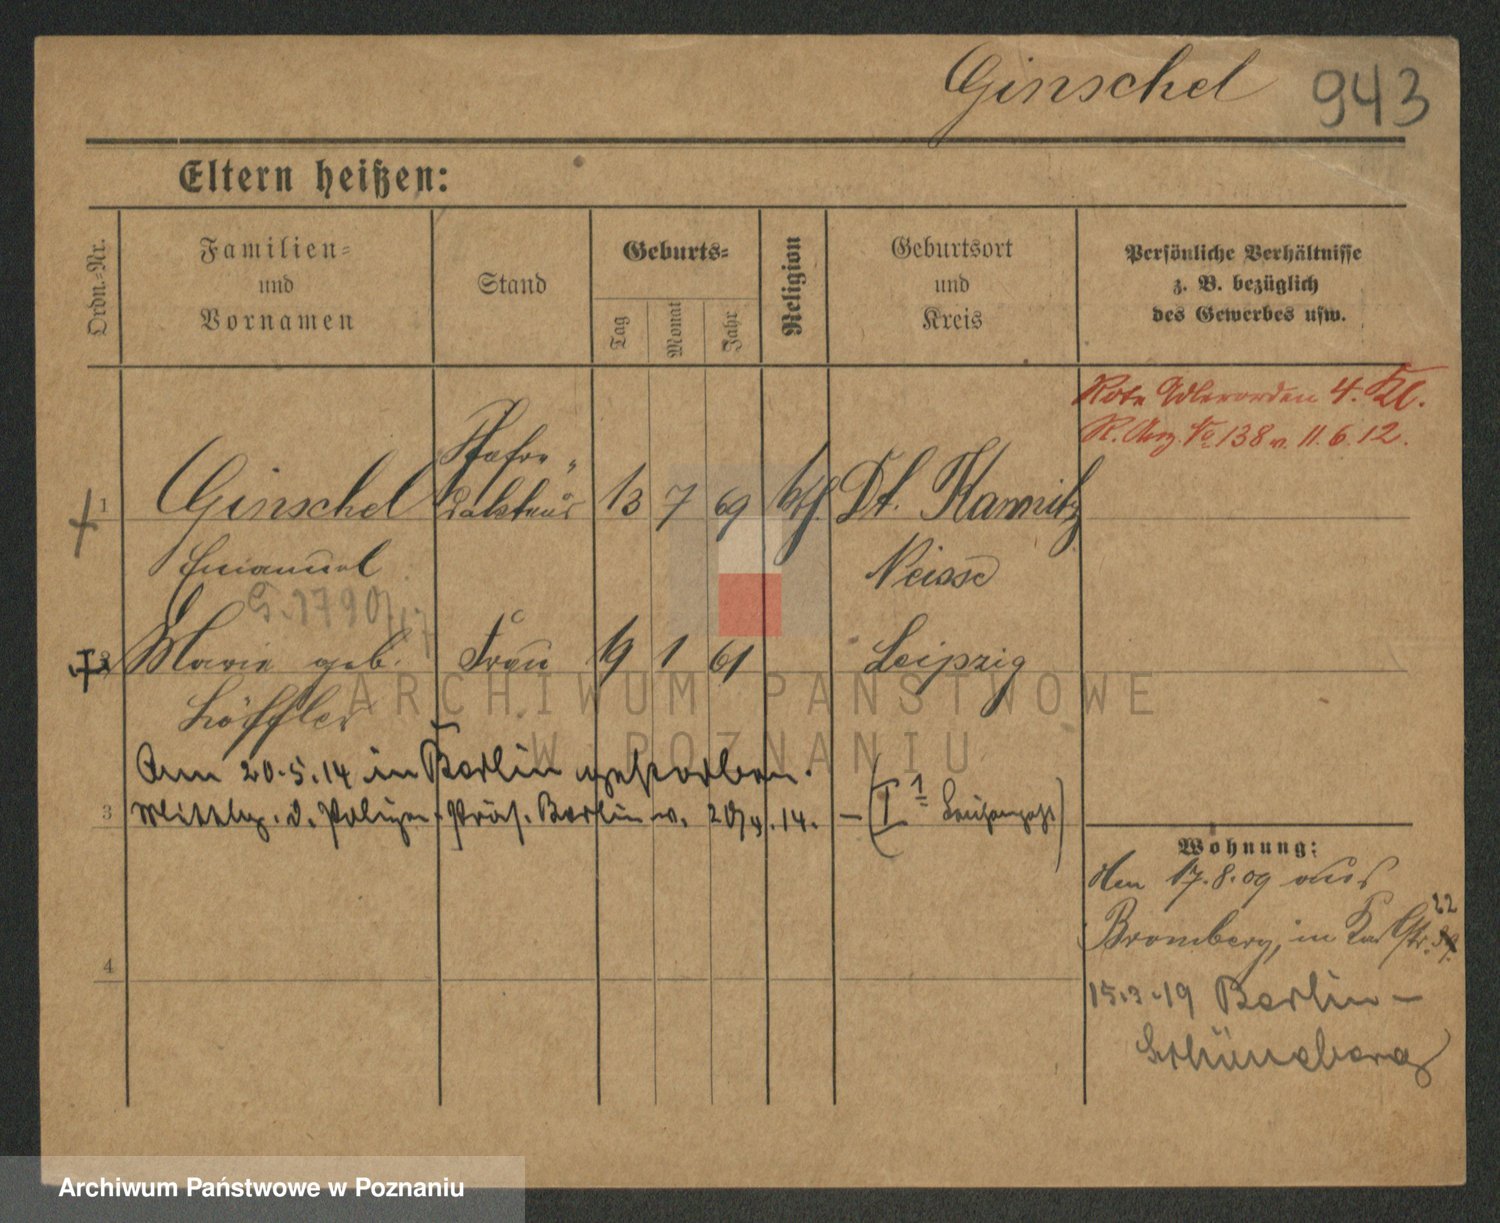 Ginschel 943
Eltern heißen:
Ordn.-Nr.
Familien-
und
Vornamen
Stand
Geburts-
Tag
Monat
Jahr
Religion
Geburtsort
und
Kreis
Persönliche Verhältnisse
z. B. bezüglich
des Gewerbes usw.
Rote Adlerorden 4. Kl.
R. Anz. No 138 v. 11.6.12.
1 Ginschel 13 7 69 kth. Dt. Kamnitz
Emanuel Neisse
G. 1790/17
2 Marie geb. Frau 19 1 61 Leipzig
Löffler
Am 20.5.14 in Berlin gestorben.
3 Mittlg. d. Polizei-Präs. Berlin v. 14. – (I
Wohnung:
den 17.8.09 aus
22
Bromberg, in
4
15.3.19 Berlin-
Schöneberg
ARCHIWUM PAŃSTWOWE
W POZNANIU
Archiwum Państwowe w Poznaniu